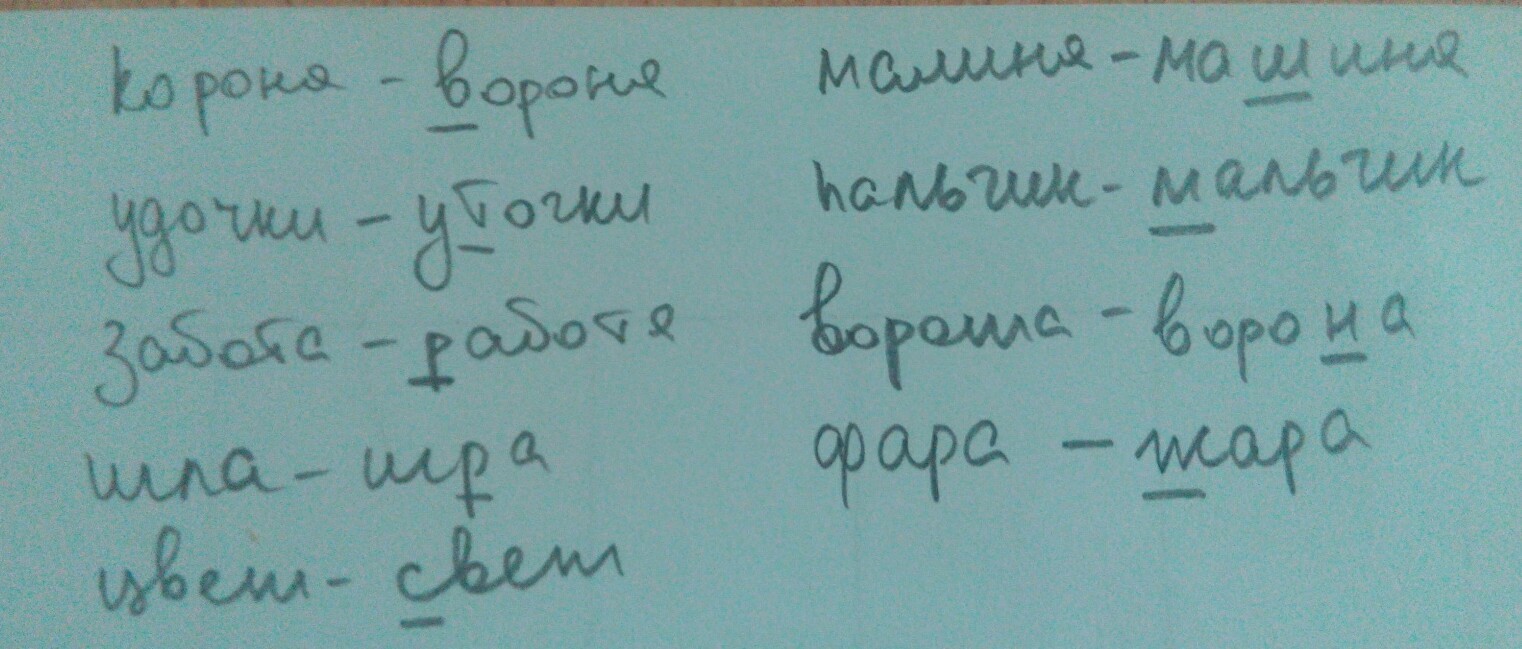 корона - ворона
удочки - уточки
забота - работа
игла - игра
цвет - свет
малина - машина
пальчик - мальчик
ворота - ворона
фара - жара